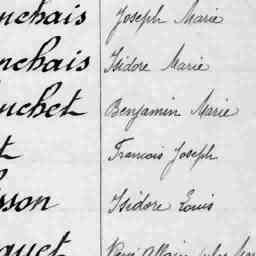 nchais Joseph Marie
nchais Isidore Marie
uchet Benjamin Marie
t Francois Joseph
sson Isidore Louis
quet René